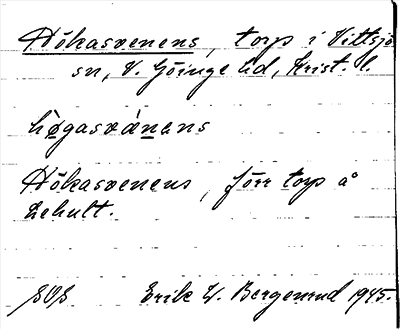 Hökasvenens, torp i Vittsjö
sn, V. Göinge hd, Krist. l.
høgasvánens
Hökasvenens, förr torp å
Lehult.
SOS Erik W. Bergenrud 1945.